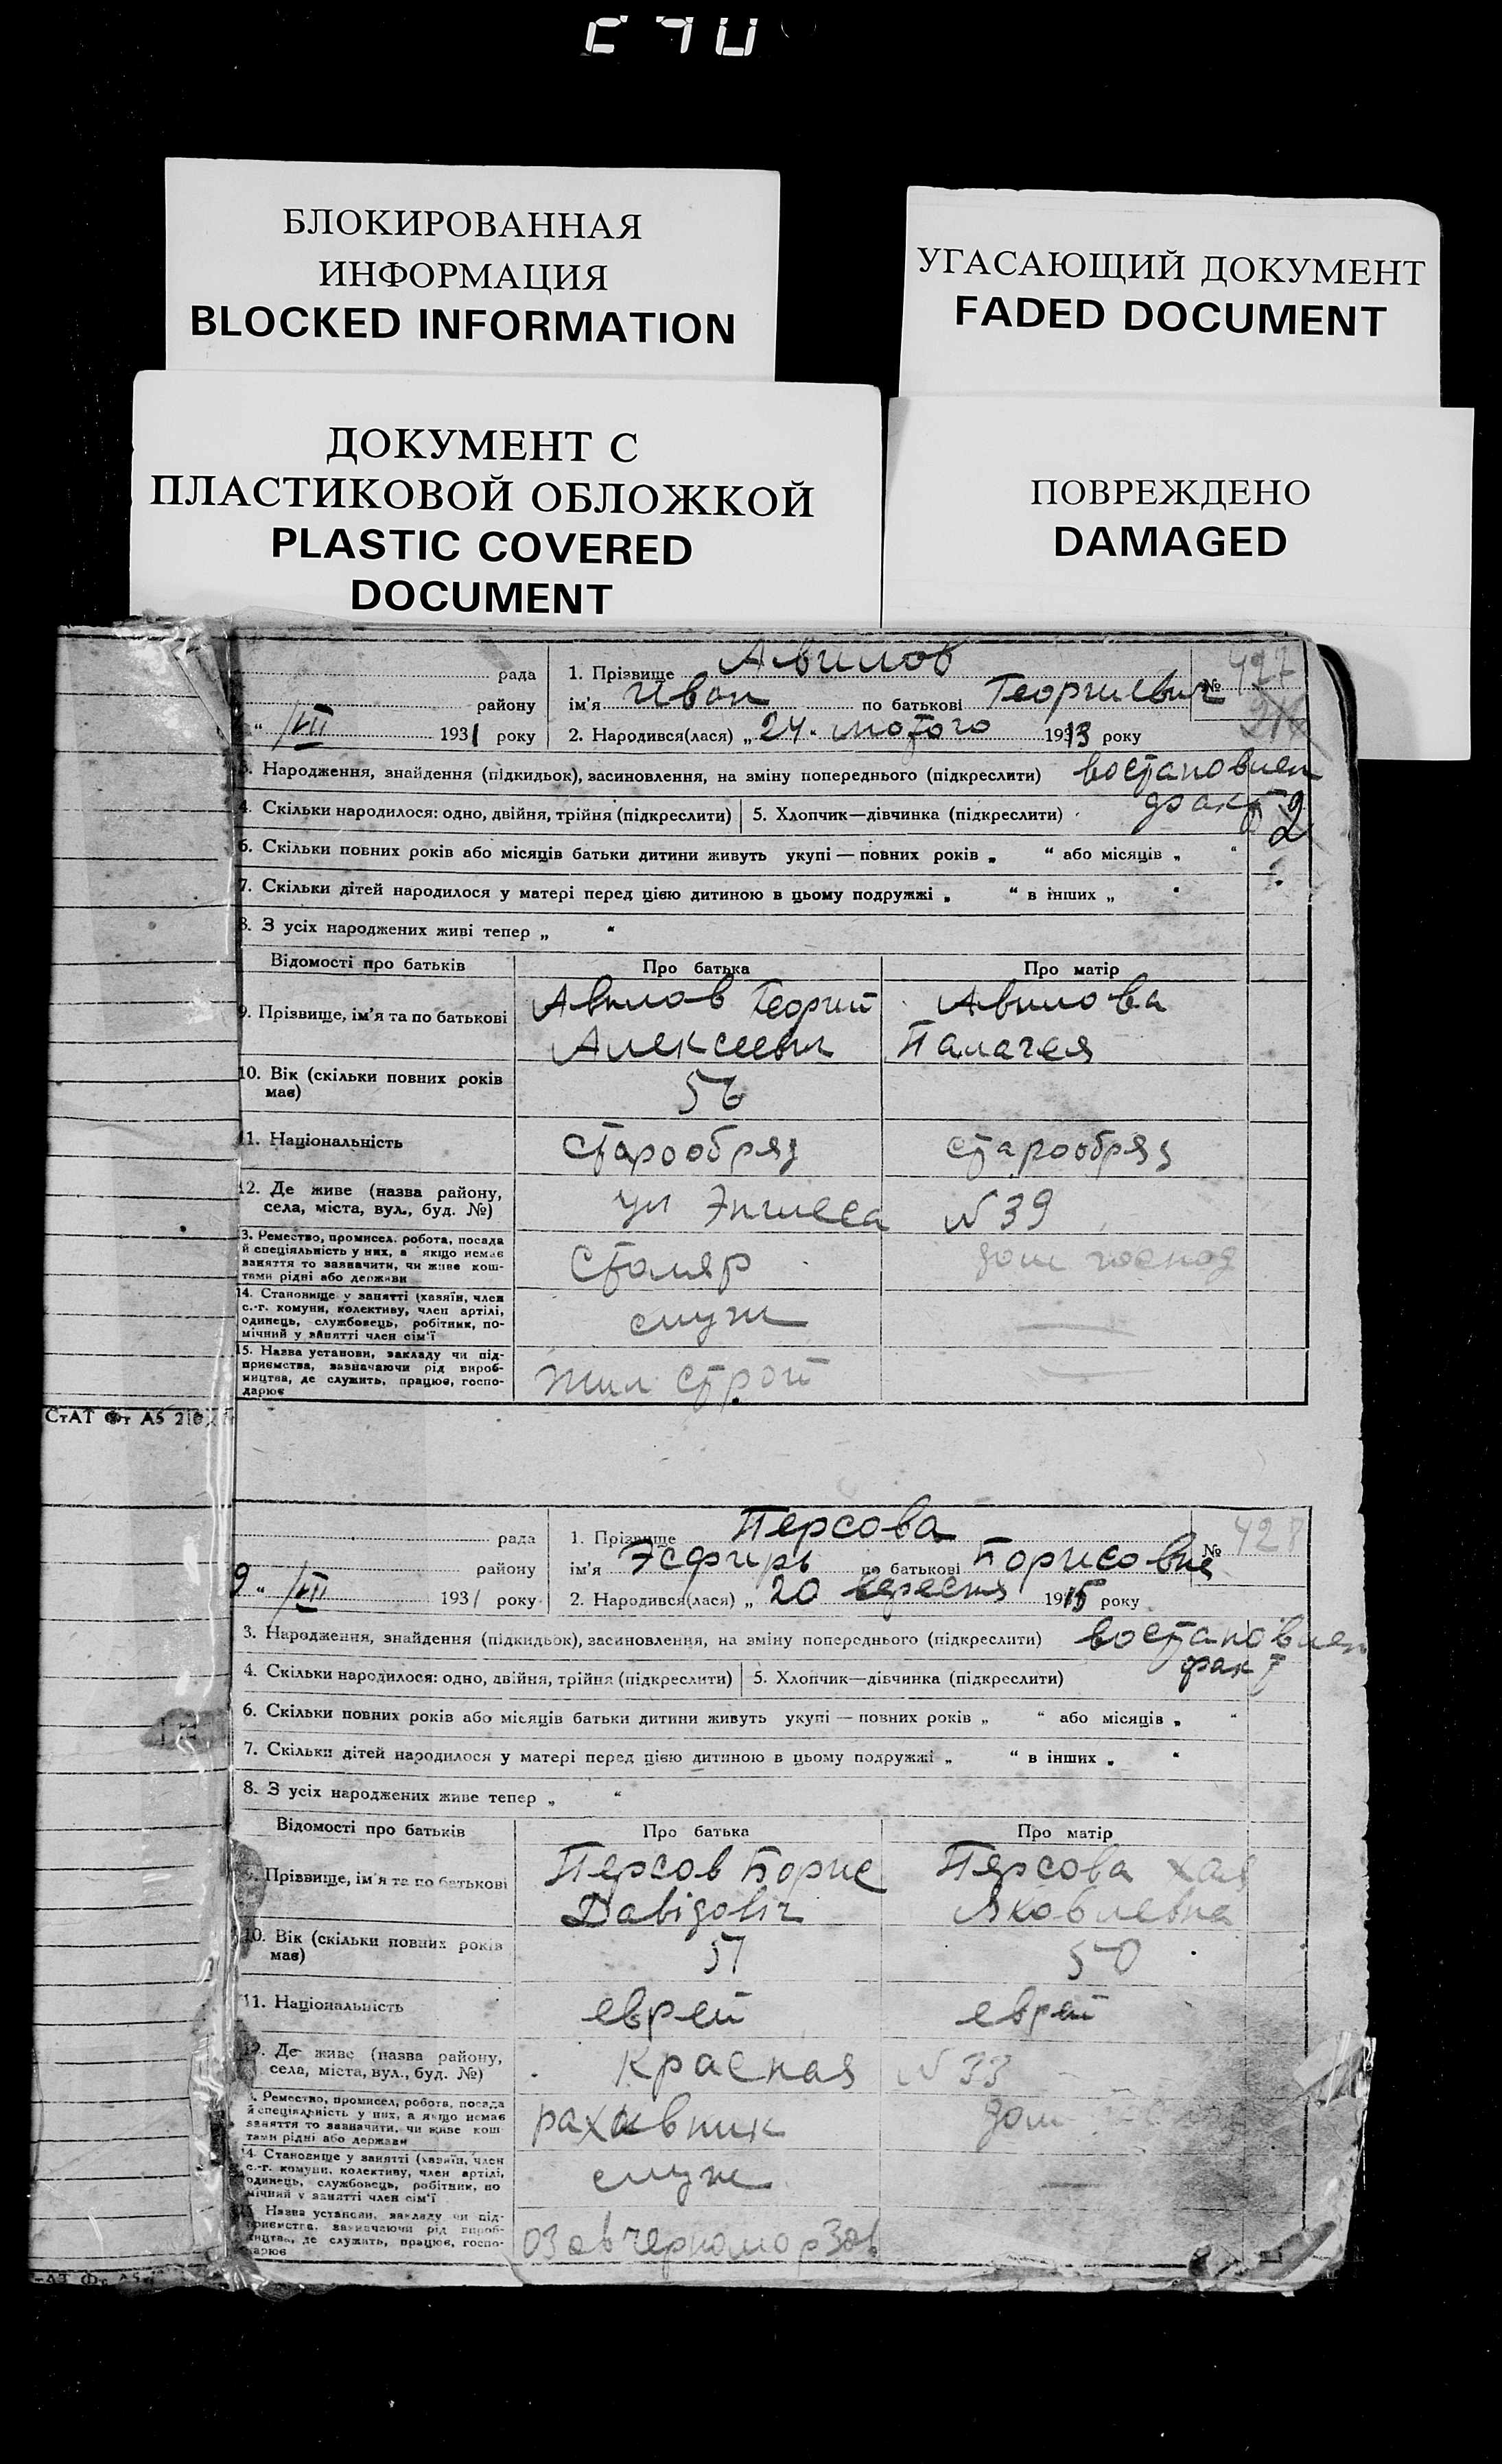 БЛОКИРОВАННАЯ
ИНФОРМАЦИЯ
BLOCKED INFORMATION
УГАСАЮЩИЙ ДОКУМЕНТ
FADED DOCUMENT
ДОКУМЕНТ С
ПЛАСТИКОВОЙ ОБЛОЖКОЙ
PLASTIC COVERED
DOCUMENT
ПОВРЕЖДЕНО
DAMAGED
рада 1. Прізвище Авилов 427
району ім'я Иван по батькові Георгиевич №
„ “ /VII 1931 року 2. Народився(лася) „24“ лютого 1913 року
3. Народження, знайдення (підкидьок), засиновлення, на зміну попереднього (підкреслити) востановлен
4. Скільки народилося: одно, двійня, трійня (підкреслити) 5. Хлопчик—дівчинка (підкреслити) факт 2
6. Скільки повних років або місяців батьки дитини живуть укупі — повних років „ “ або місяців „ “
7. Скільки дітей народилося у матері перед цією дитиною в цьому подружжі „ “ в інших „ “
8. З усіх народжених живі тепер „ “
Відомості про батьків Про батька Про матір
9. Прізвище, ім'я та по батькові Авилов Георгий Авилова
Алексеевич Палагея
10. Вік (скільки повних років має) 56
11. Національність старообряд старообряд
12. Де живе (назва району, села, міста, вул., буд. №) ул Энгелса N 39
13. Ремество, промисел, робота, посада й спеціяльність у них, а якщо немає заняття то зазначити, чи живе коштами рідні або держави Столяр дом господ
14. Становище у занятті (хазяїн, член с.-г. комуни, колективу, член артілі, одинець, службовець, робітник, помічний у занятті член сім'ї служ —
15. Назва установи, закладу чи підприємства, зазначаючи рід виробництва, де служить, працює, господарює Жил строй —
СтАТ Фт А5 210
рада 1. Прізвище Персова 428
району ім'я Эсфирь по батькові Борисовна №
9 „ /VII 1931 року 2. Народився(лася) „ 20 вересня 1915 року
3. Народження, знайдення (підкидьок), засиновлення, на зміну попереднього (підкреслити) востановлен
4. Скільки народилося: одно, двійня, трійня (підкреслити) 5. Хлопчик—дівчинка (підкреслити) факт
6. Скільки повних років або місяців батьки дитини живуть укупі — повних років „ “ або місяців „ “
7. Скільки дітей народилося у матері перед цією дитиною в цьому подружжі „ “ в інших „ “
8. З усіх народжених живе тепер „ “
Відомості про батьків Про батька Про матір
9. Прізвище, ім'я та по батькові Персов Борис Персова Хая
Давідовіч Яковлевна
10. Вік (скільки повних років має) 57 50
11. Національність еврей еврей
12. Де живе (назва району, села, міста, вул., буд. №) Красная N 33
13. Ремество, промисел, робота, посада й спеціяльність у них, а якщо немає заняття то зазначити, чи живе коштами рідні або держави рахивник дом
14. Становище у занятті (хазяїн, член с.-г. комуни, колективу, член артілі, одинець, службовець, робітник, помічний у занятті член сім'ї служ —
15. Назва установи, закладу чи підприємства, зазначаючи рід виробництва, де служить, працює, господарює